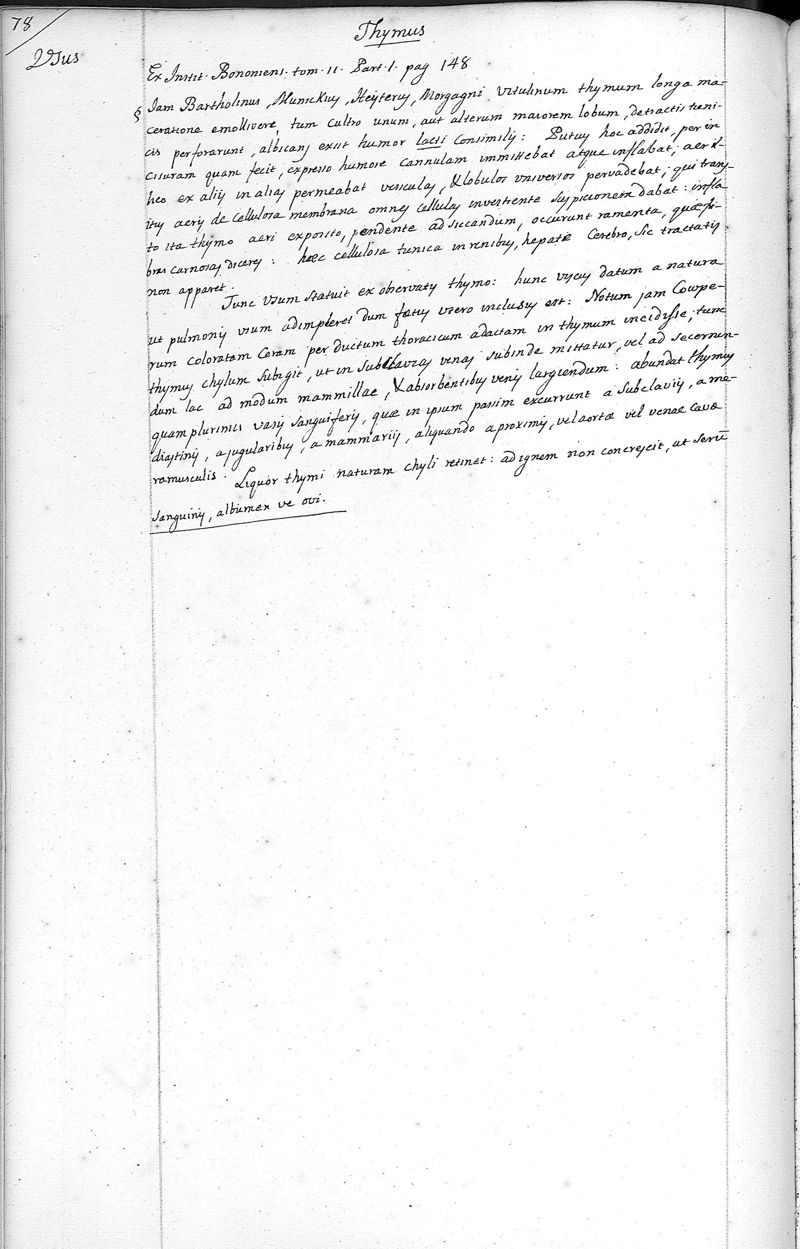 78
Thymus
Usus
Ex Instit. Bononiens. tom. II. Part. I. pag 148
§ Iam Bartholinus, Munickius, Heyterus, Morgagni vitulinum thymum longa ma=
ceratione emollivere, tum cultro unum, aut alterum maiorem lobum, detractis tuni-
cis perforarunt, albicans exiit humor lacti consimilis: Putus hoc addidit, per in
cisuram quam fecit, expresso humore cannulam immittebat atque inflabat; aer il-
lico ex aliis in alias permeabat vesiculas, & lobulos universos pervadebat; qui trans-
itus aeris de cellulosa membrana omnes cellulas investiente suspicionem dabat: infla
to ita thymo aeri exposito, pendente ad siccandum, occurunt ramenta, quae fi-
bras carnosas diceres: haec cellulosa tunica in renibus, hepate Cerebro, sic tractatis
non apparet.
Tunc usum statuit ex observatis thymo: hunc usum datum a natura
ut pulmonis usum adimpleret dum faetus utero inclusus est: Notum jam Cowpe-
rum coloratam ceram per ductum thoracicum adactam in thymum incidisse; tunc
thymus chylum subigit, ut in subclavias venas subinde mittatur, vel ad secernen-
dum lac ad modum mammillae, & absorbentibus venis largiendum: abundat thymus
quam plurimis vasis sanguiferis, quae in ipsum passim excurrunt a subclaviis, a me-
diastinis, a jugularibus, a mammariis, aliquando a proximis, vel aortae vel venae cavae
ramusculis. Liquor thymi naturam chyli retinet: ad ignem non concrescit, ut serū
sanguinis, albumex ve ovi.